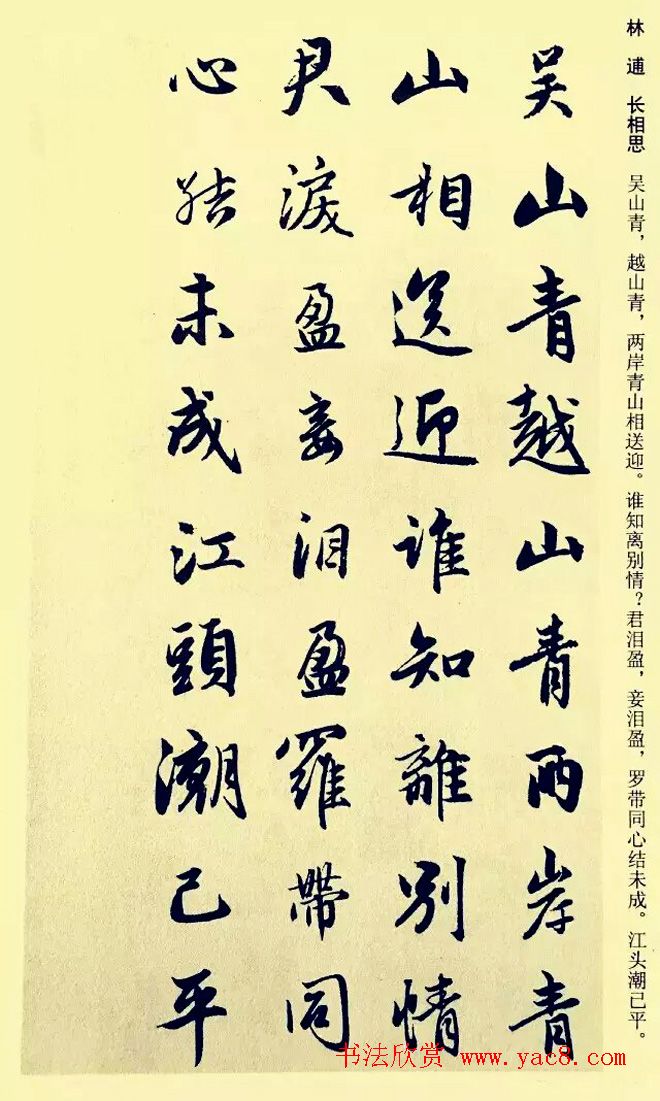 林 逋 长相思 吴山青，越山青，两岸青山相送迎。谁知离别情？君泪盈，妾泪盈，罗带同心结未成。江头潮已平。
吴山青越山青两岸青
山相送迎誰知離别情
君淚盈妾泪盈羅帶同
心结未成江頭潮已平
书法欣赏 www.yac8.com